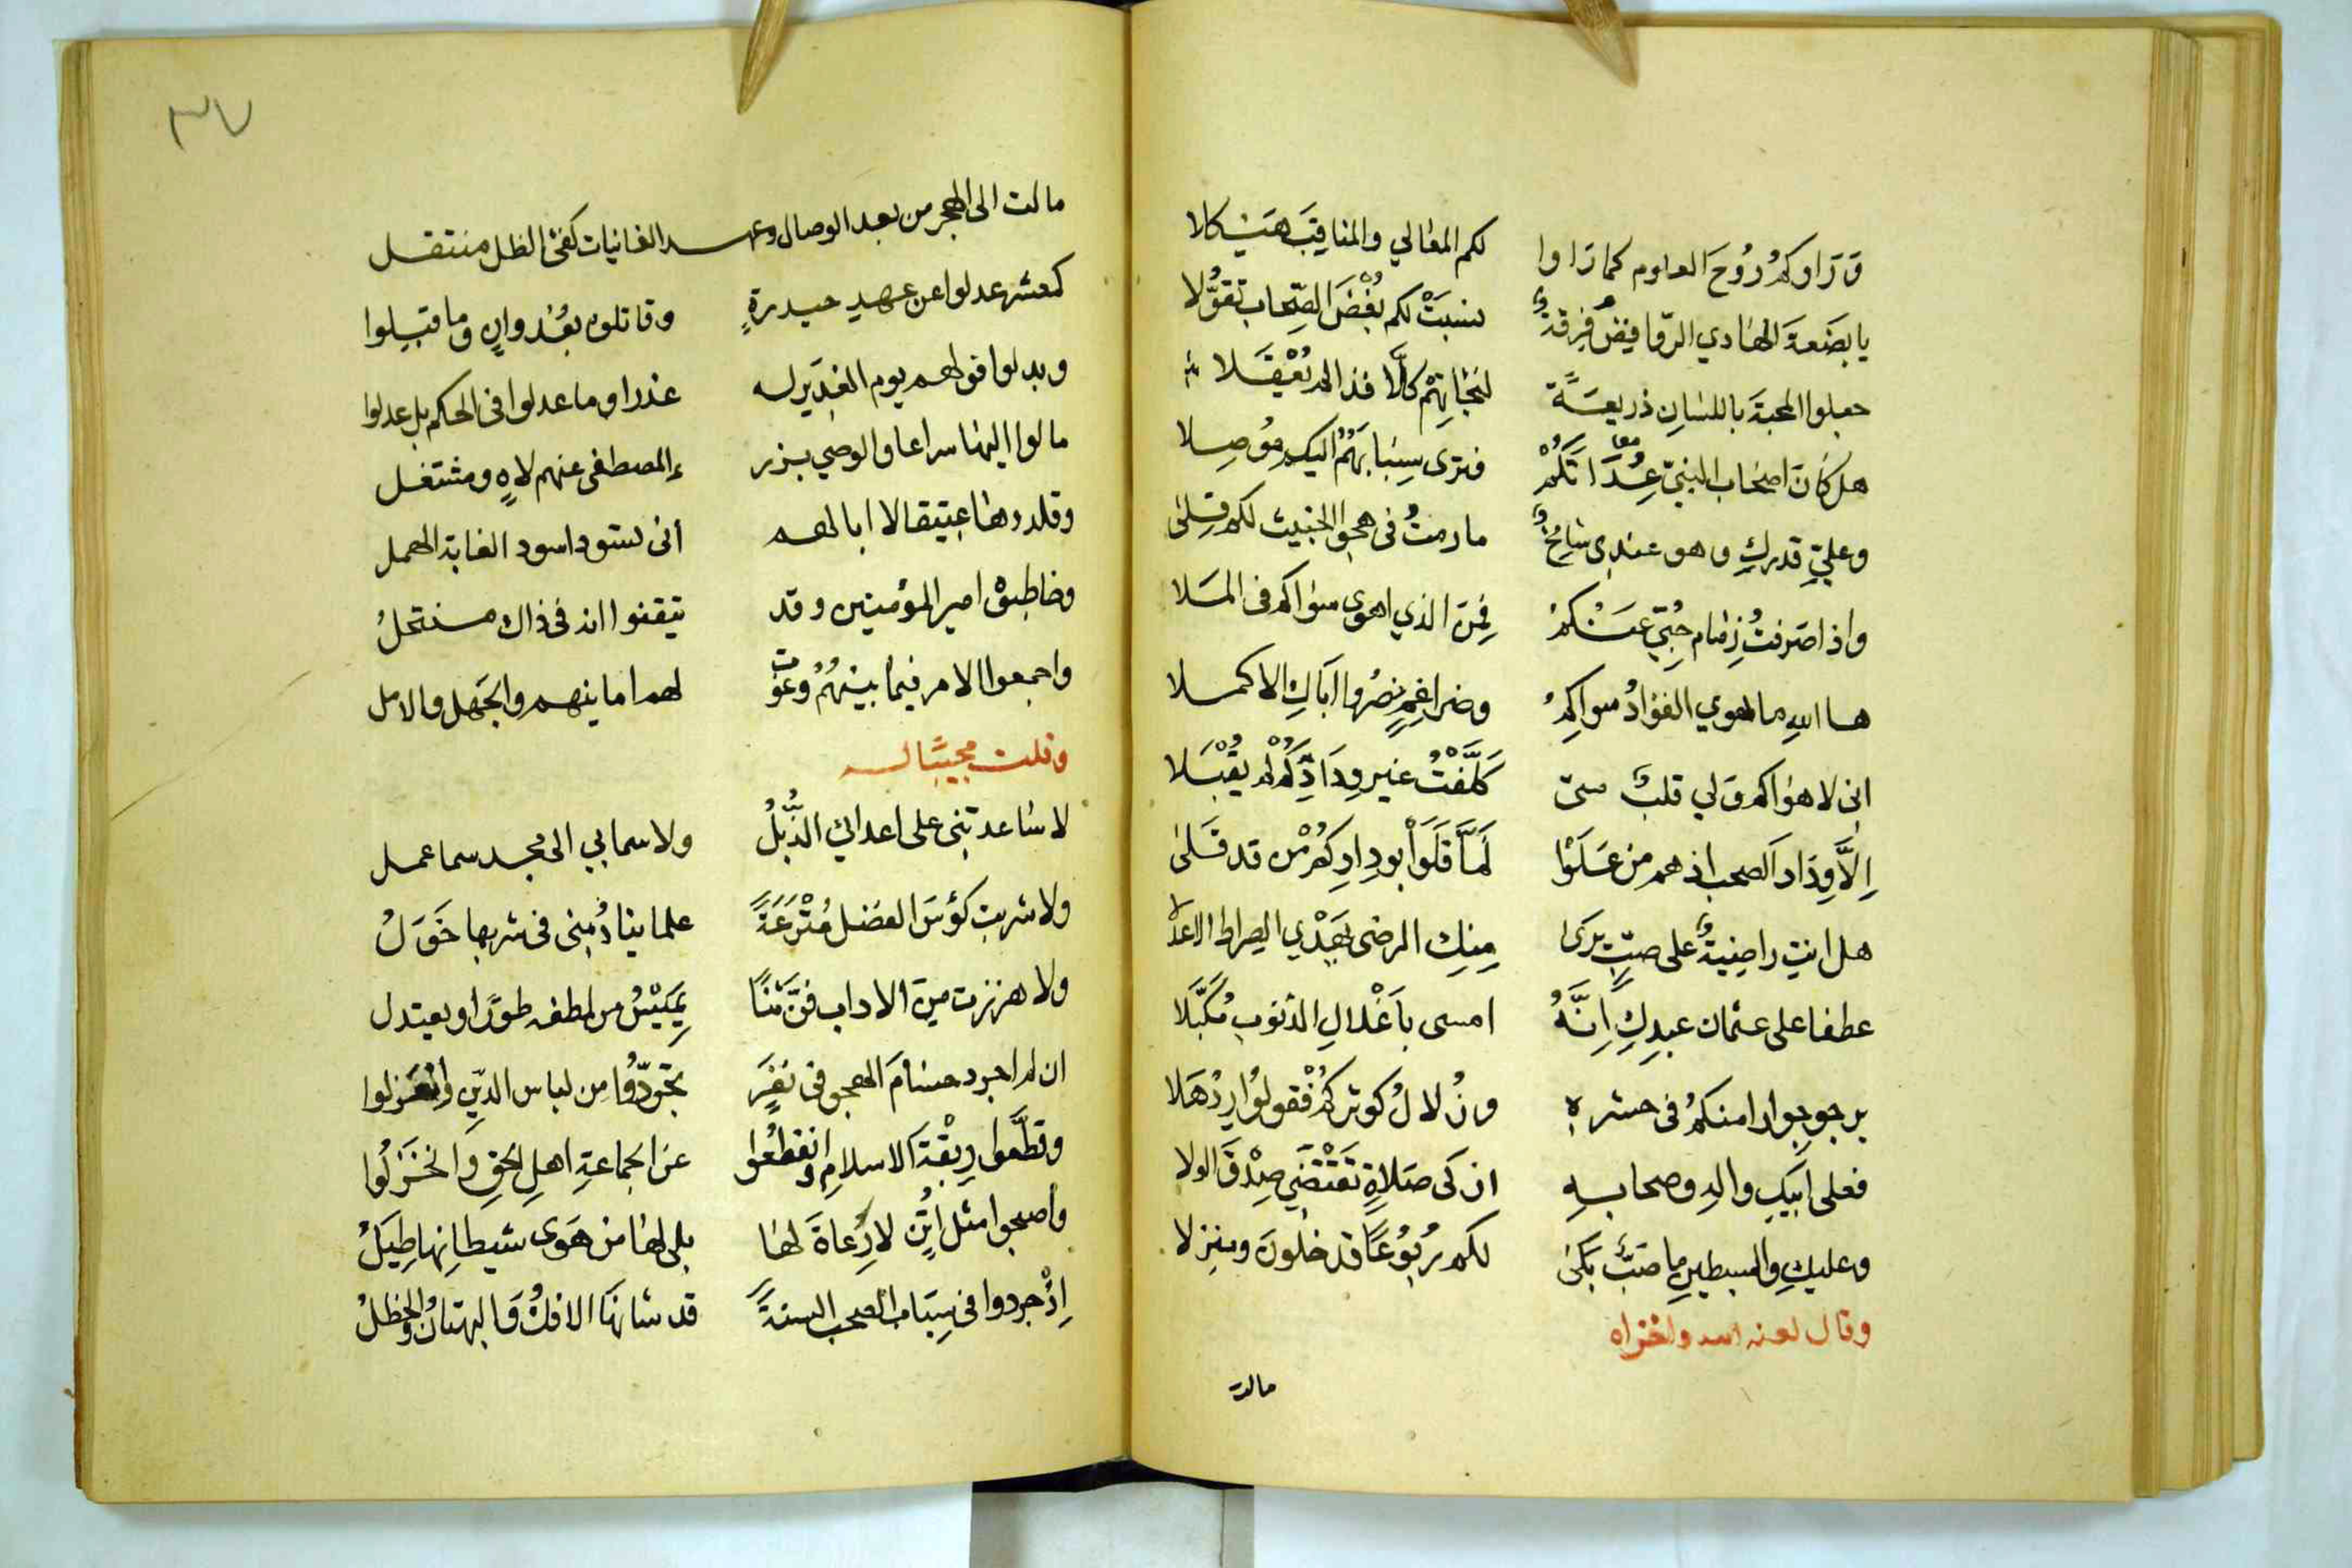 وَرَاوكمُ رُوحَ العلوم كما رَاوا لكم المعالي والمناقِبَ هَيْكلا
يا بضعةَ الهادي الرّوافِضُ فِرقةٌ نسبَتْ لكم بُغْضَ الصِّحاب تقوُّلا
جعلوا المحبةَ باللسانِ ذريعـةً لنجاتِهِمْ كلَّا فذا لم يُعْقَلا
هل كانَ اصحابُ النبيّ عِدًا تَكُمْ فترى سِبابَهُمُ اليكم مُوصِلا
وعليّ قدركِ وهو عندي شامخٌ ما رمتُ في هجو الخبيث لكم قِلى
واذا صَرفتُ زِمام حُبّي عَنْكمُ فَمَنِ الذي اهوى سواكم في المَلا
ها اللهِ ما يهوي الفؤادُ سواكمُ وضراغمٍ نصرُوا اباكِ الاكمـلا
اني لاهواكم وَلي قلبٌ متى كَلَّفْتُ غير وِدَادِكُمْ لم يقْبَلا
إلَّا وِدَاد الصحب اذ هم من عَلَوْا لمَّا قَلَوْا بودادِكم مْن قد قَلى
هل انتِ راضيةٌ على صبٍّ يَرَى منكِ الرضى يَهْدي الصراط الاعدلا
عطفا على عثمان عبدِكِ اِنَّهُ امسى باَغْلالِ الذنوب مُكَبَّلا
يرجو جوارا منكمُ في حشرهِ وزُلالُ كوثركم فقولُوا رِدْ هَلا
فعلى ابَيكِ والهِ وصحابـهِ ازكى صَلاةٍ تَقْتَضي صِدْقَ الولا
وعليكِ والسبطين ما صَبٌّ بَكَى لكم رُبُوعًا قد خلونَ ومنزلا
وقال لعنه الله واخزاه
مالت
٣٧
مالت الى الهجر من بعد الوصال وعهـد الغانيات كفئ الظل منتقـل
كمعشر عدلوا عن عهدِ حيدرةٍ وقاتلوه بعُدوانٍ وما قبلوا
وبدلوا قولهم يوم الغدير له غدرا وما عدلوا في الحكم بل عدلوا
مالوا اليها سراعا والوصي برزء المصطفى عنهم لاهٍ ومشتغل
وقلدوها عتيقا لا ابا لهم أنى تسود اسود الغابة الهمل
وخاطبوْه امير المؤمنين وقد تيقنوا انه في ذاك منتحلُ
واجمعوا الامر فيما بينهُمُ وغوَت لهم امانيهم والجَهل والامل
وقلت مجيبًا له
لا ساعدتني على اعدائي الذُّبُلُ ولا سما بي الى مجد سما عمل
ولا شربت كؤسَ الفضل مُتْرَعَةً علما ينادُمني في شربها خَوَلُ
ولا هززت مِنَ الاداب فنّ ثَنًا يَمِيْسُ من لطفه طورًا ويعتدل
ان لم اجرد حسامَ الهجو في نفَرٍ تجرّدُوا من لباس الدين وانعزلوا
وقطَّعوا ربْقَةَ الاسلامِ وانقطعُوا عن الجماعةِ اهلِ الحقِ وَانخزلُوا
واصبحوا مثل اُتُنٍ لا رُعاةَ لها بلى لها من هَوَى شيطانِها طِيَلُ
اِذْ جردوا في سِبَاب الصحب السنةً قد شانَها الافكُ وَالبهتانُ والخطلُ